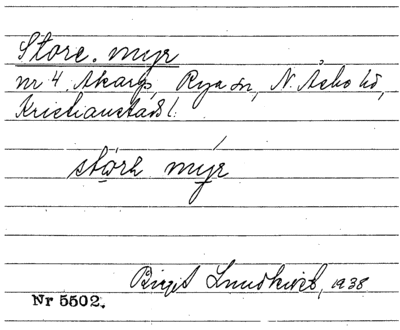 Store. myr
nr 4. Akarp, Rya sn, N. Åsbo hd,
Kristianstads l.
störe myr
Birgit Lundkvist, 1938
Nr 5502.